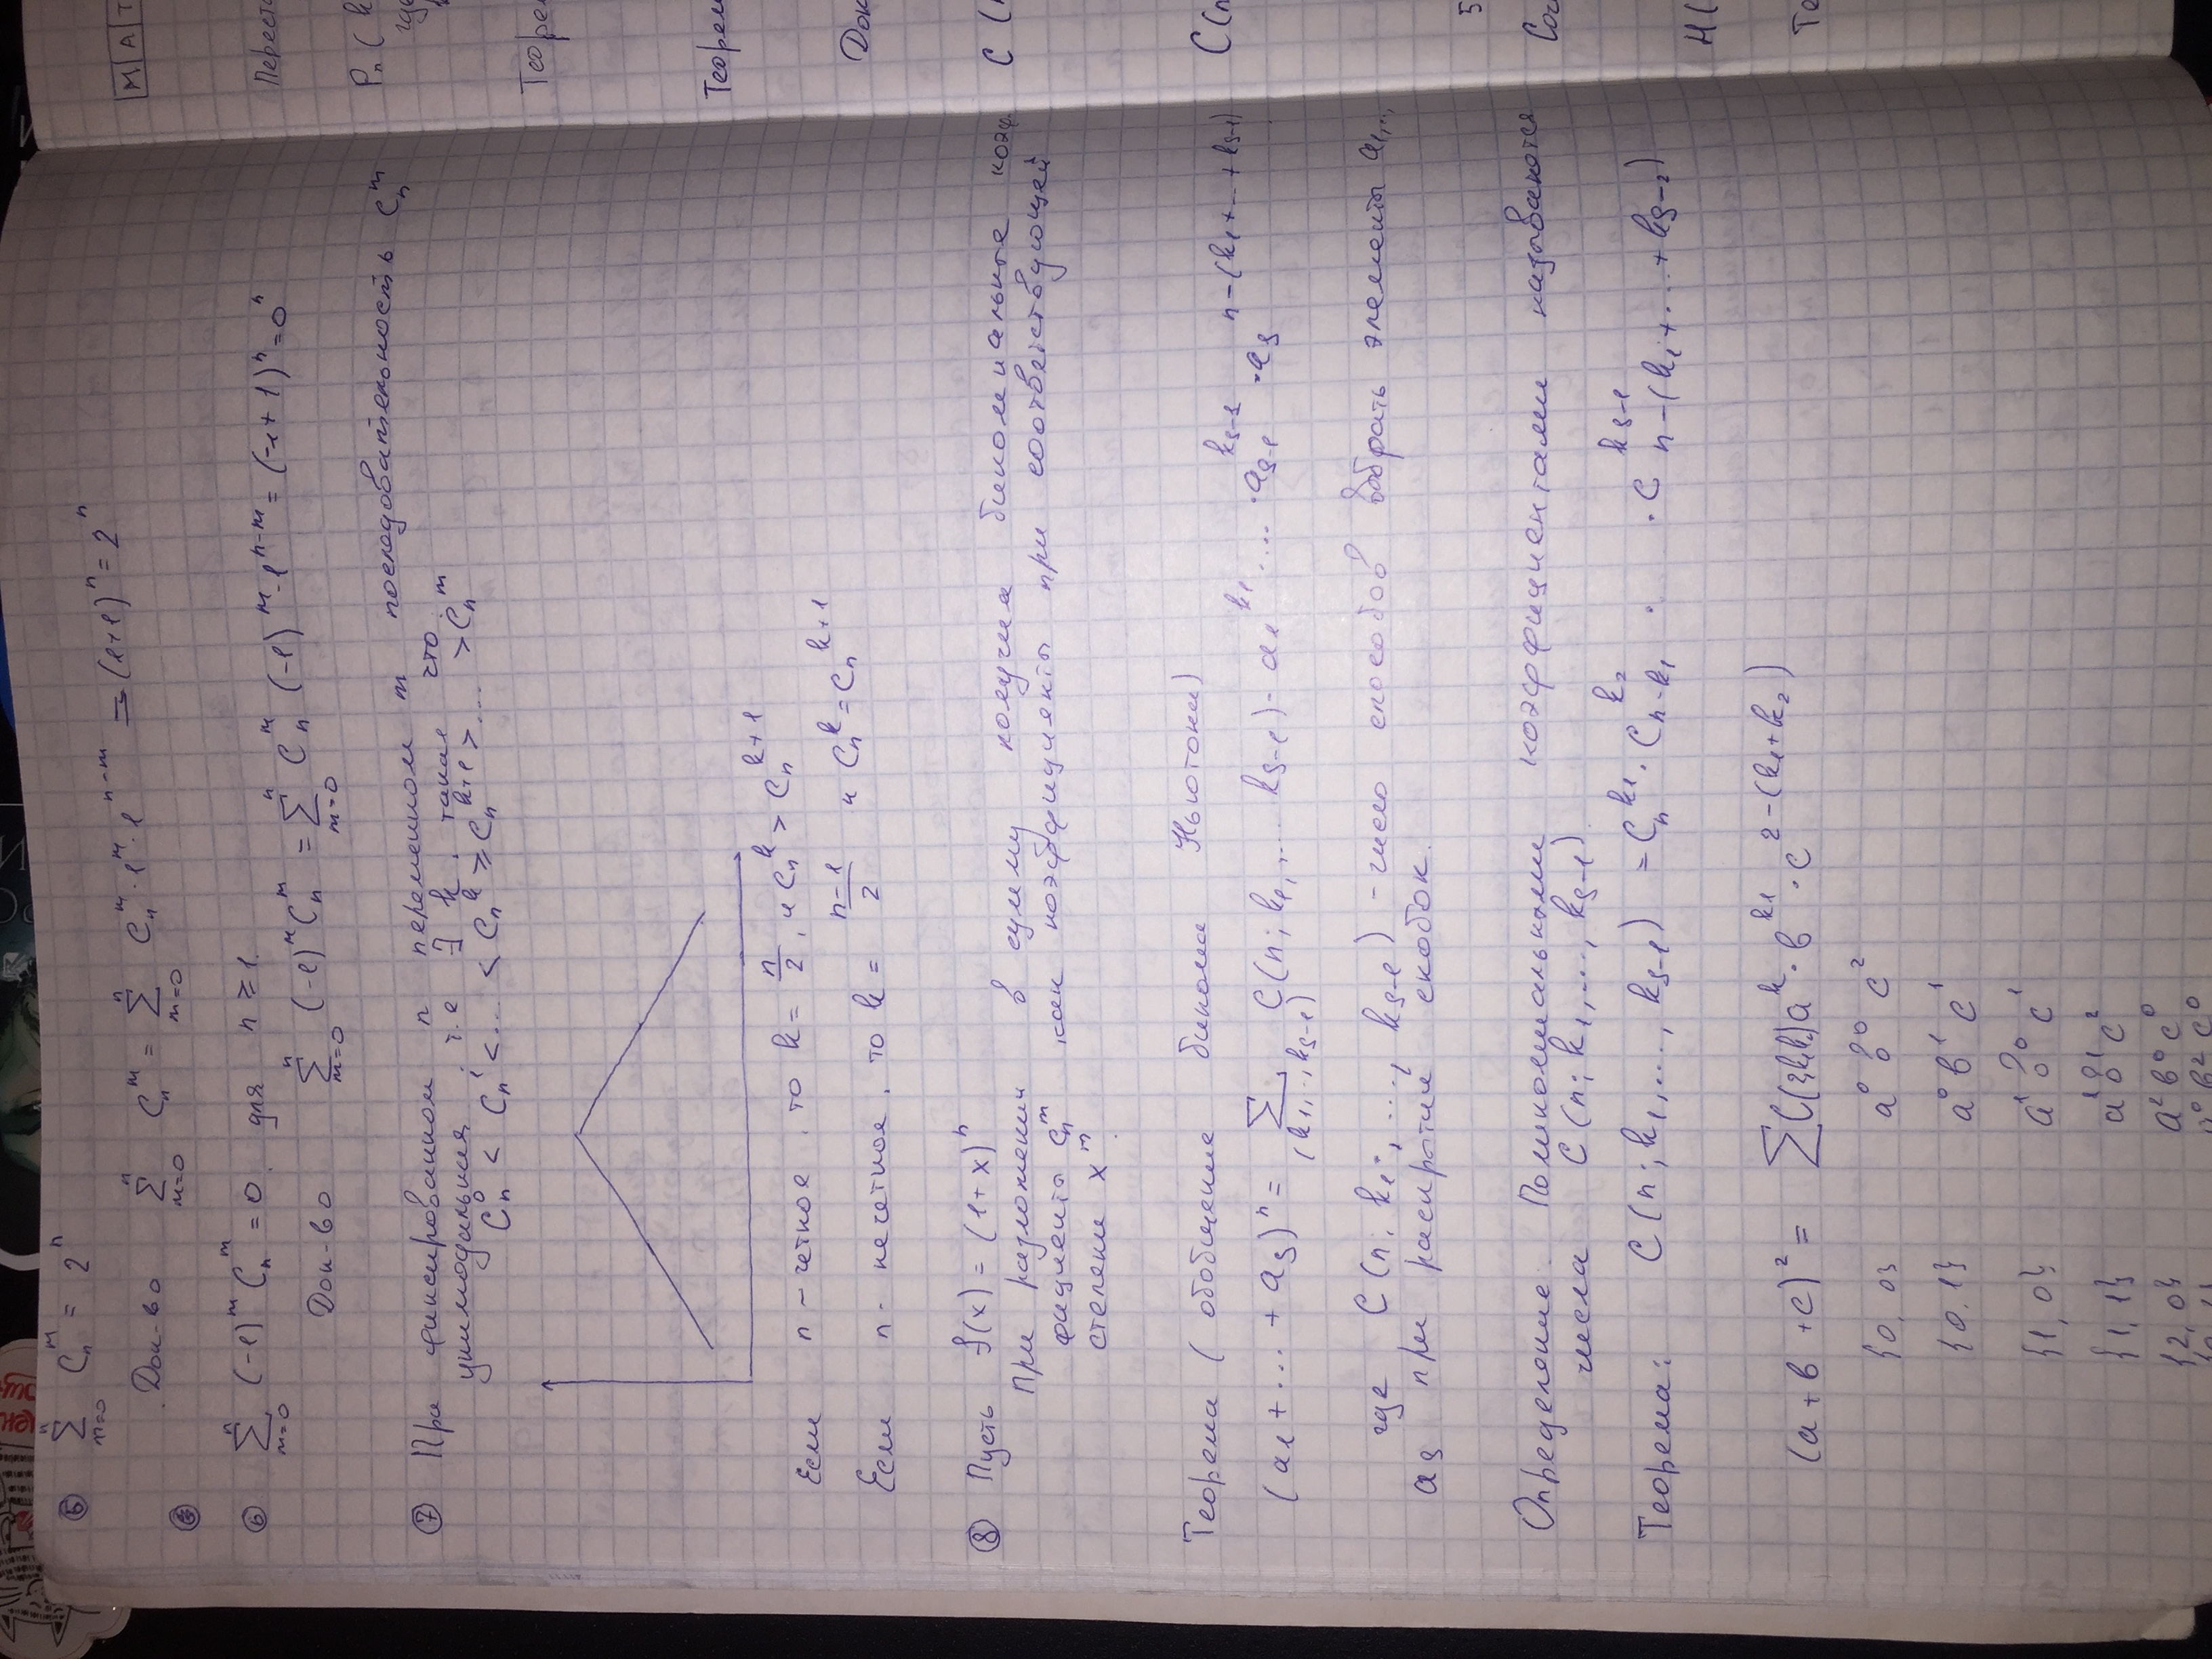 ⑤ Σ_{m=0} C_n^m = 2^n
Док-во Σ_{m=0}^n C_n^m = Σ_{m=0}^n C_n^m · 1^m · 1^{n-m} = (1+1)^n = 2^n
⑥ Σ_{m=0}^n (-1)^m C_n^m = 0, для n ≥ 1.
Док-во Σ_{m=0}^n (-1)^m C_n^m = Σ_{m=0}^n C_n^m (-1)^m · 1^{n-m} = (-1+1)^n = 0^n
⑦ При фиксированном n переменном m последовательность C_n^m
унимодальная, т.е ∃ k, такая что
C_n^0 < C_n^1 < ... < C_n^k ≥ C_n^{k+1} > ... > C_n^m
Если n - четное, то k = n/2, и C_n^k > C_n^{k+1}
Если n - нечетное, то k = (n-1)/2 и C_n^k = C_n^{k+1}
⑧ Пусть f(x) = (1+x)^n
При разложении в сумму получим биномиальные коэф-
фициенты C_n^m как коэффициенты при соответствующей
степени x^m.
Теорема (обобщение бинома Ньютона)
(a_1 + ... + a_s)^n = Σ_{(k_1,...,k_{s-1})} C(n; k_1, ... k_{s-1}) · a_1^{k_1} · ... · a_{s-1}^{k_{s-1}} · a_s^{n-(k_1+...+k_{s-1})}
где C(n; k_1, ..., k_{s-1}) - число способов выбрать элементы a_1,...,
a_s при раскрытии скобок.
Определение. Полиномиальными коэффициентами называются
числа C(n; k_1, ..., k_{s-1}).
Теорема: C(n; k_1, ..., k_{s-1}) = C_n^{k_1} · C_{n-k_1}^{k_2} · · C_{n-(k_1+...+k_{s-2})}^{k_{s-1}}
(a + b + c)^2 = Σ C(2,k_1,k_2) a^k · b^{k_1} · c^{2-(k_1+k_2)}
{0, 0} a^0 b^0 c^2
{0, 1} a^0 b^1 c^1
{1, 0} a^1 b^0 c^1
{1, 1} a^1 b^1 c^2
{2, 0} a^2 b^0 c^0
a^0 b^2 c^0
МАТ
P_n(k
Теорем
Док
C(n
5
H(
Те